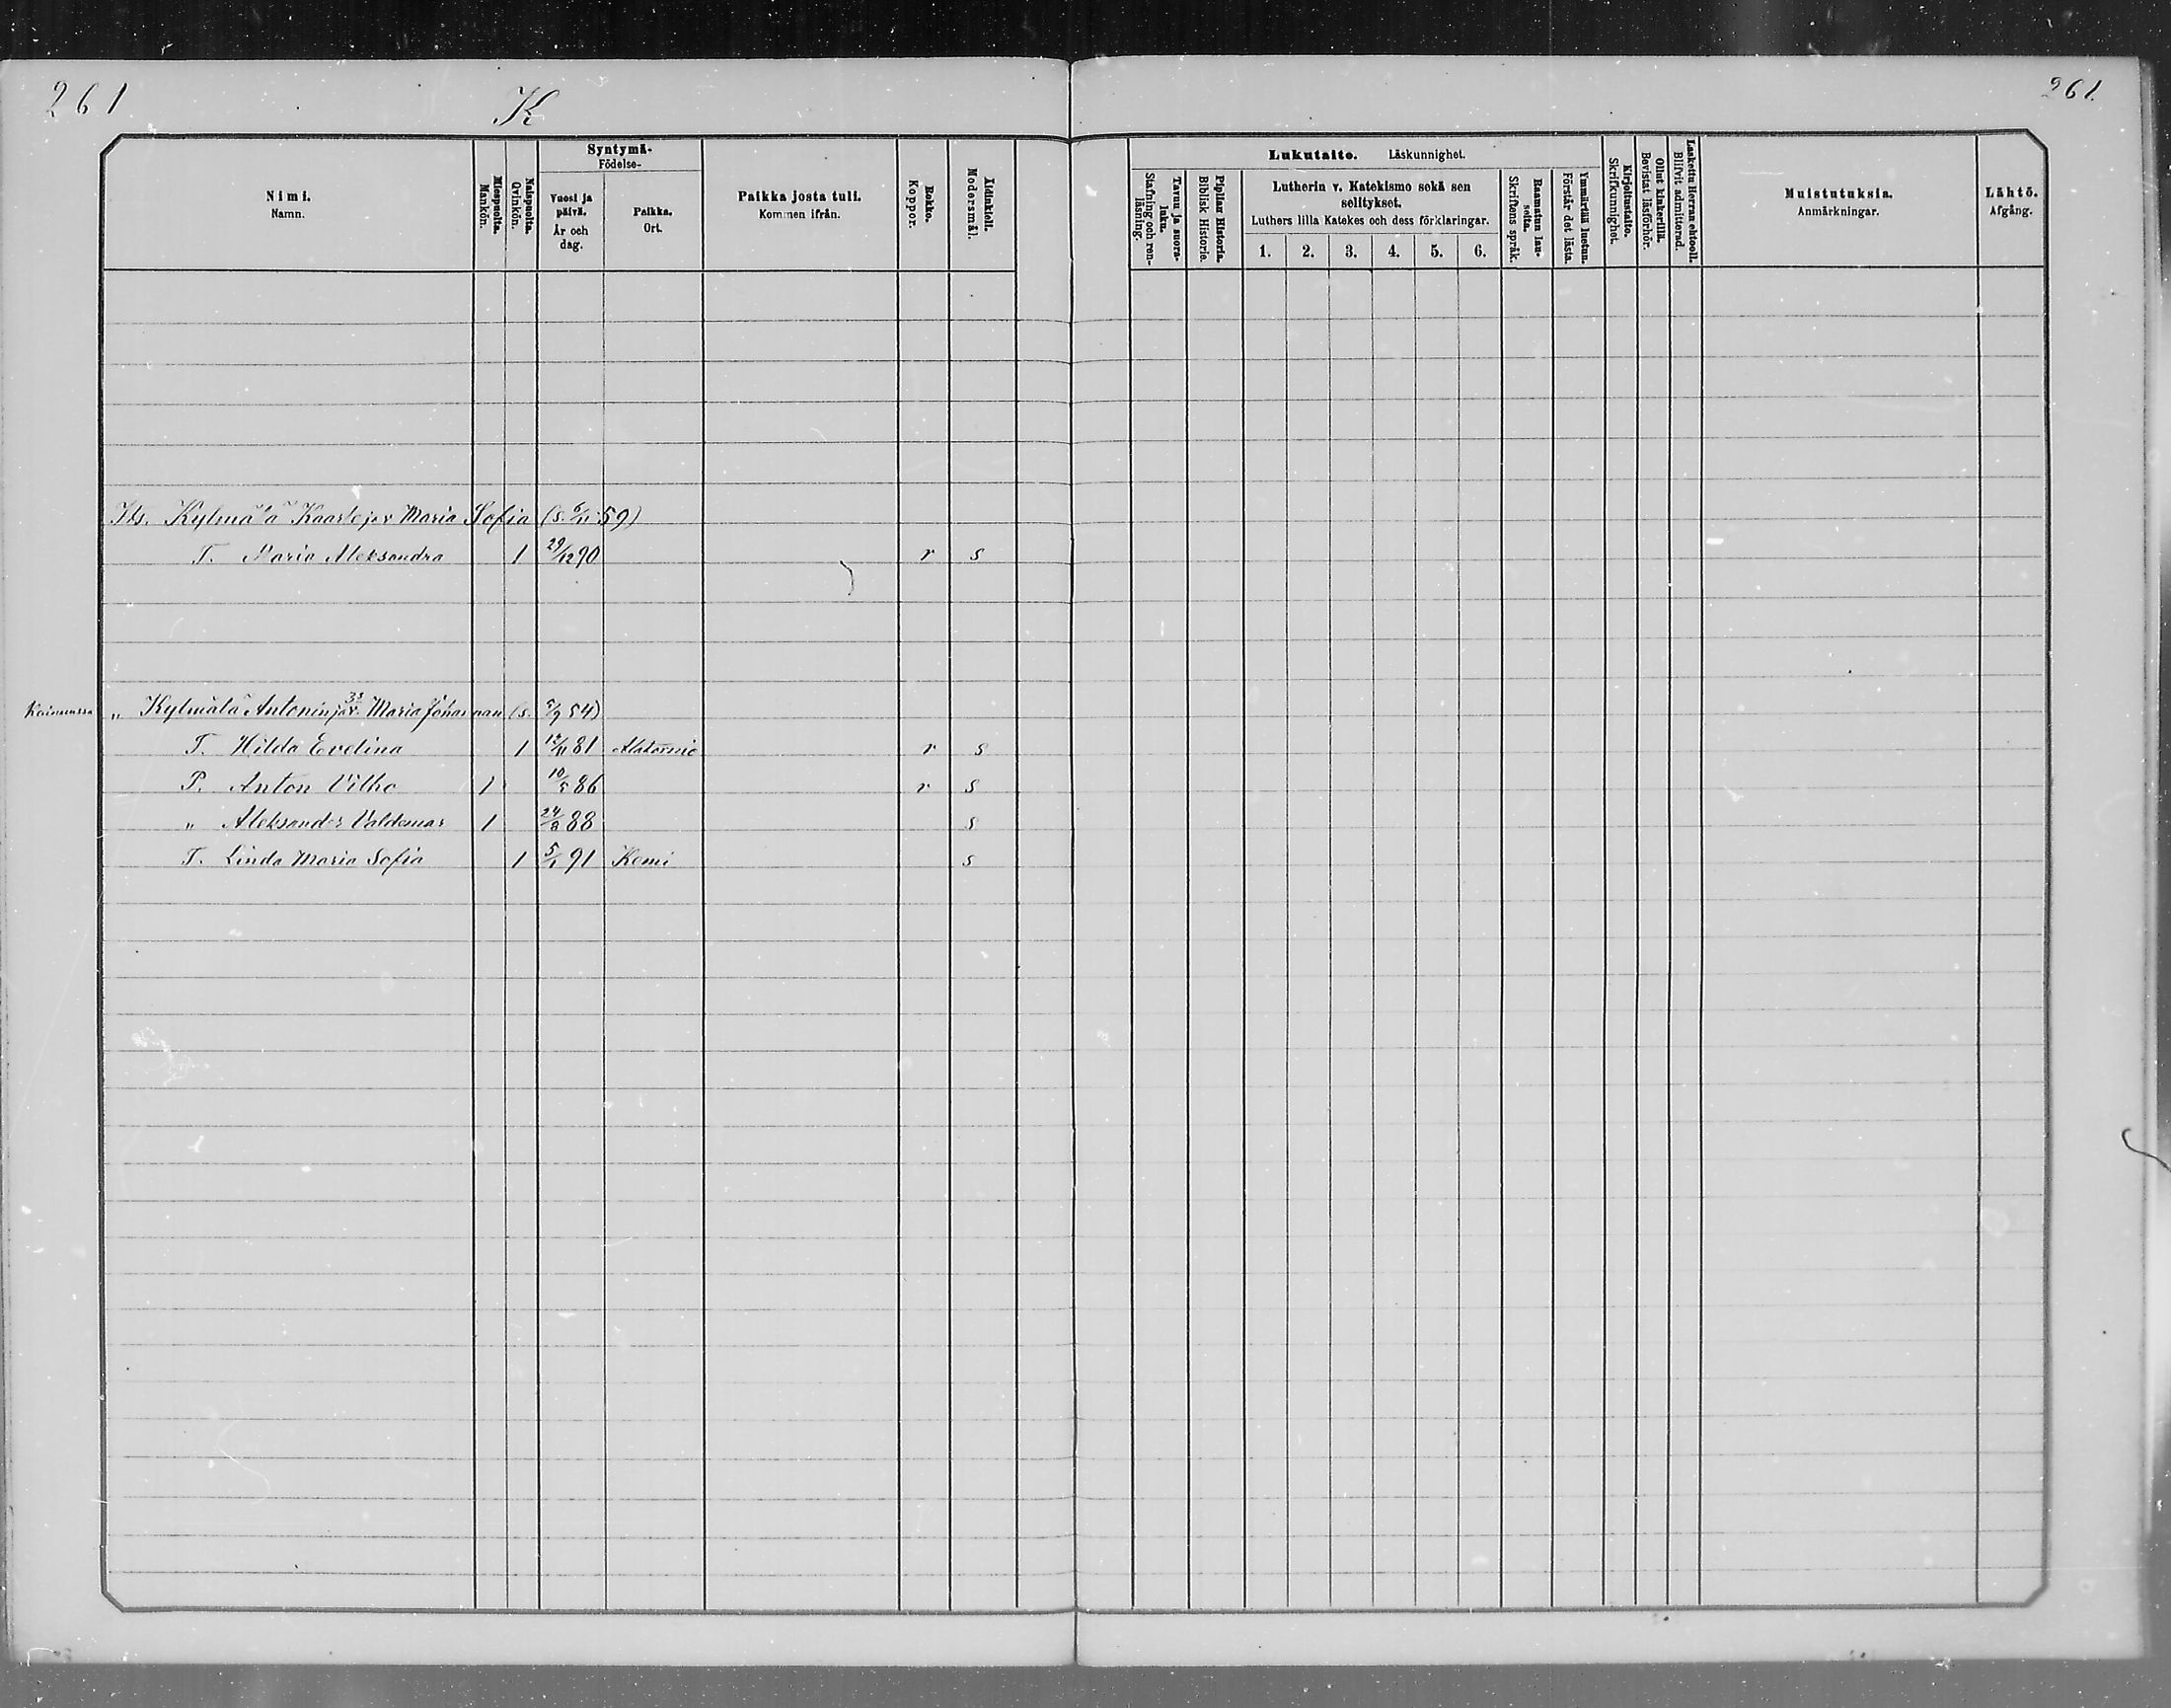 261
K
261.
Syntymä-
Födelse-
Nimi.
Namn.
Miespuolta.
Mankön.
Naispuolta.
Qvinkön.
Vuosi ja päivä.
År och dag.
Paikka.
Ort.
Paikka josta tuli.
Kommen ifrån.
Rokko.
Koppor.
Äidinkieli.
Modersmål.
Lukutaito. Läskunnighet.
Tavuu ja suora- luku.
Stafning och ren- läsning.
Piplian Historia.
Biblisk Historie.
Lutherin v. Katekismo sekä sen
selitykset.
Luthers lilla Katekes och dess förklaringar.
1. 2. 3. 4. 5. 6.
Raamatun lau- seita.
Skriftens språk.
Ymmärtää luetun.
Förstår det lästa.
Kirjoitustaito.
Skrifkunnighet.
Ollut kinkerillä.
Bevistat läsförhör.
Laskettu Herran ehtooll.
Blifvit admitterad.
Muistutuksia.
Anmärkningar.
Lähtö.
Afgång.
Its. Kylmälä Kaarlejov Maria Sofia (s. 6/11 59)
T. Maria Aleksandra 1 29/12 90 r s
„ Kylmälä Antoninjov. Maria Johannan (s. 54)
T. Hilda Evelina 1 12/11 81 Alatornio r s
P. Anton Vilho 1 10/5 86 r s
„ Aleksander Valdemar 1 24/8 88 s
T. Linda Maria Sofia 1 5/1 91 Kemi s